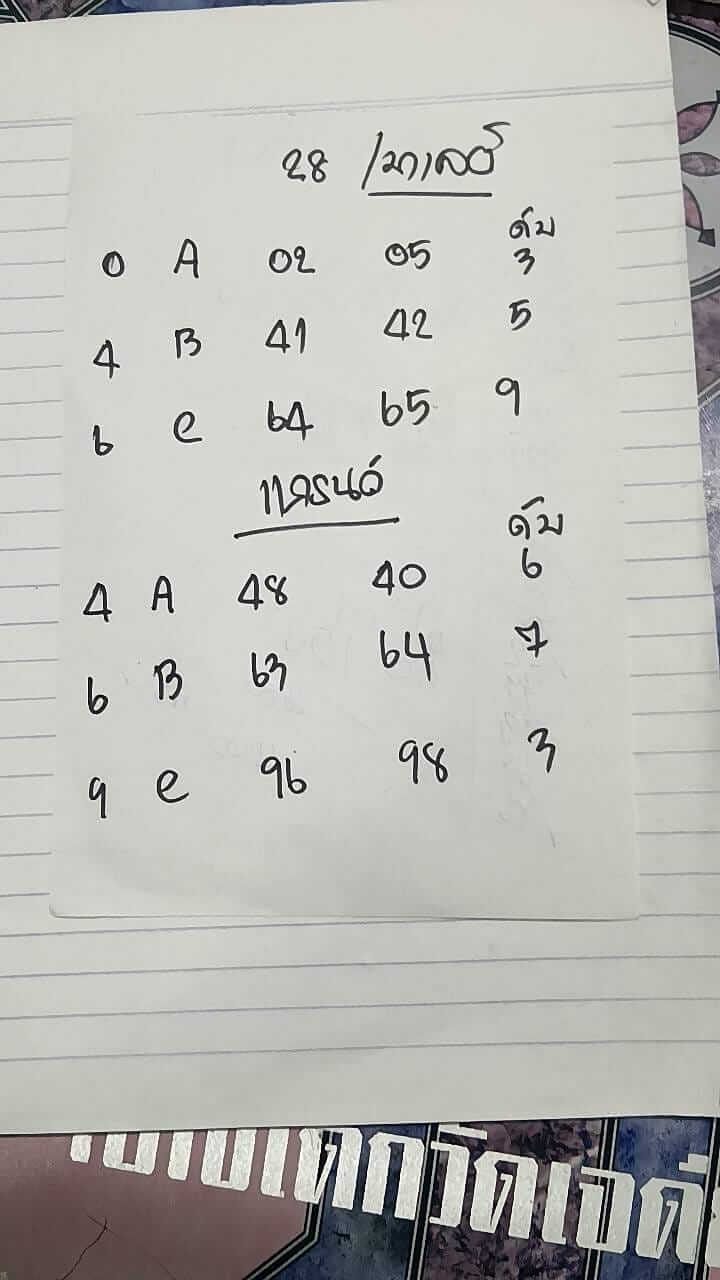 28 /มาเลย์
ดับ
0 A 02 05 3
4 B 41 42 5
6 C 64 65 9
แกรนด์
ดับ
4 A 48 40 6
6 B 63 64 7
9 C 96 98 3